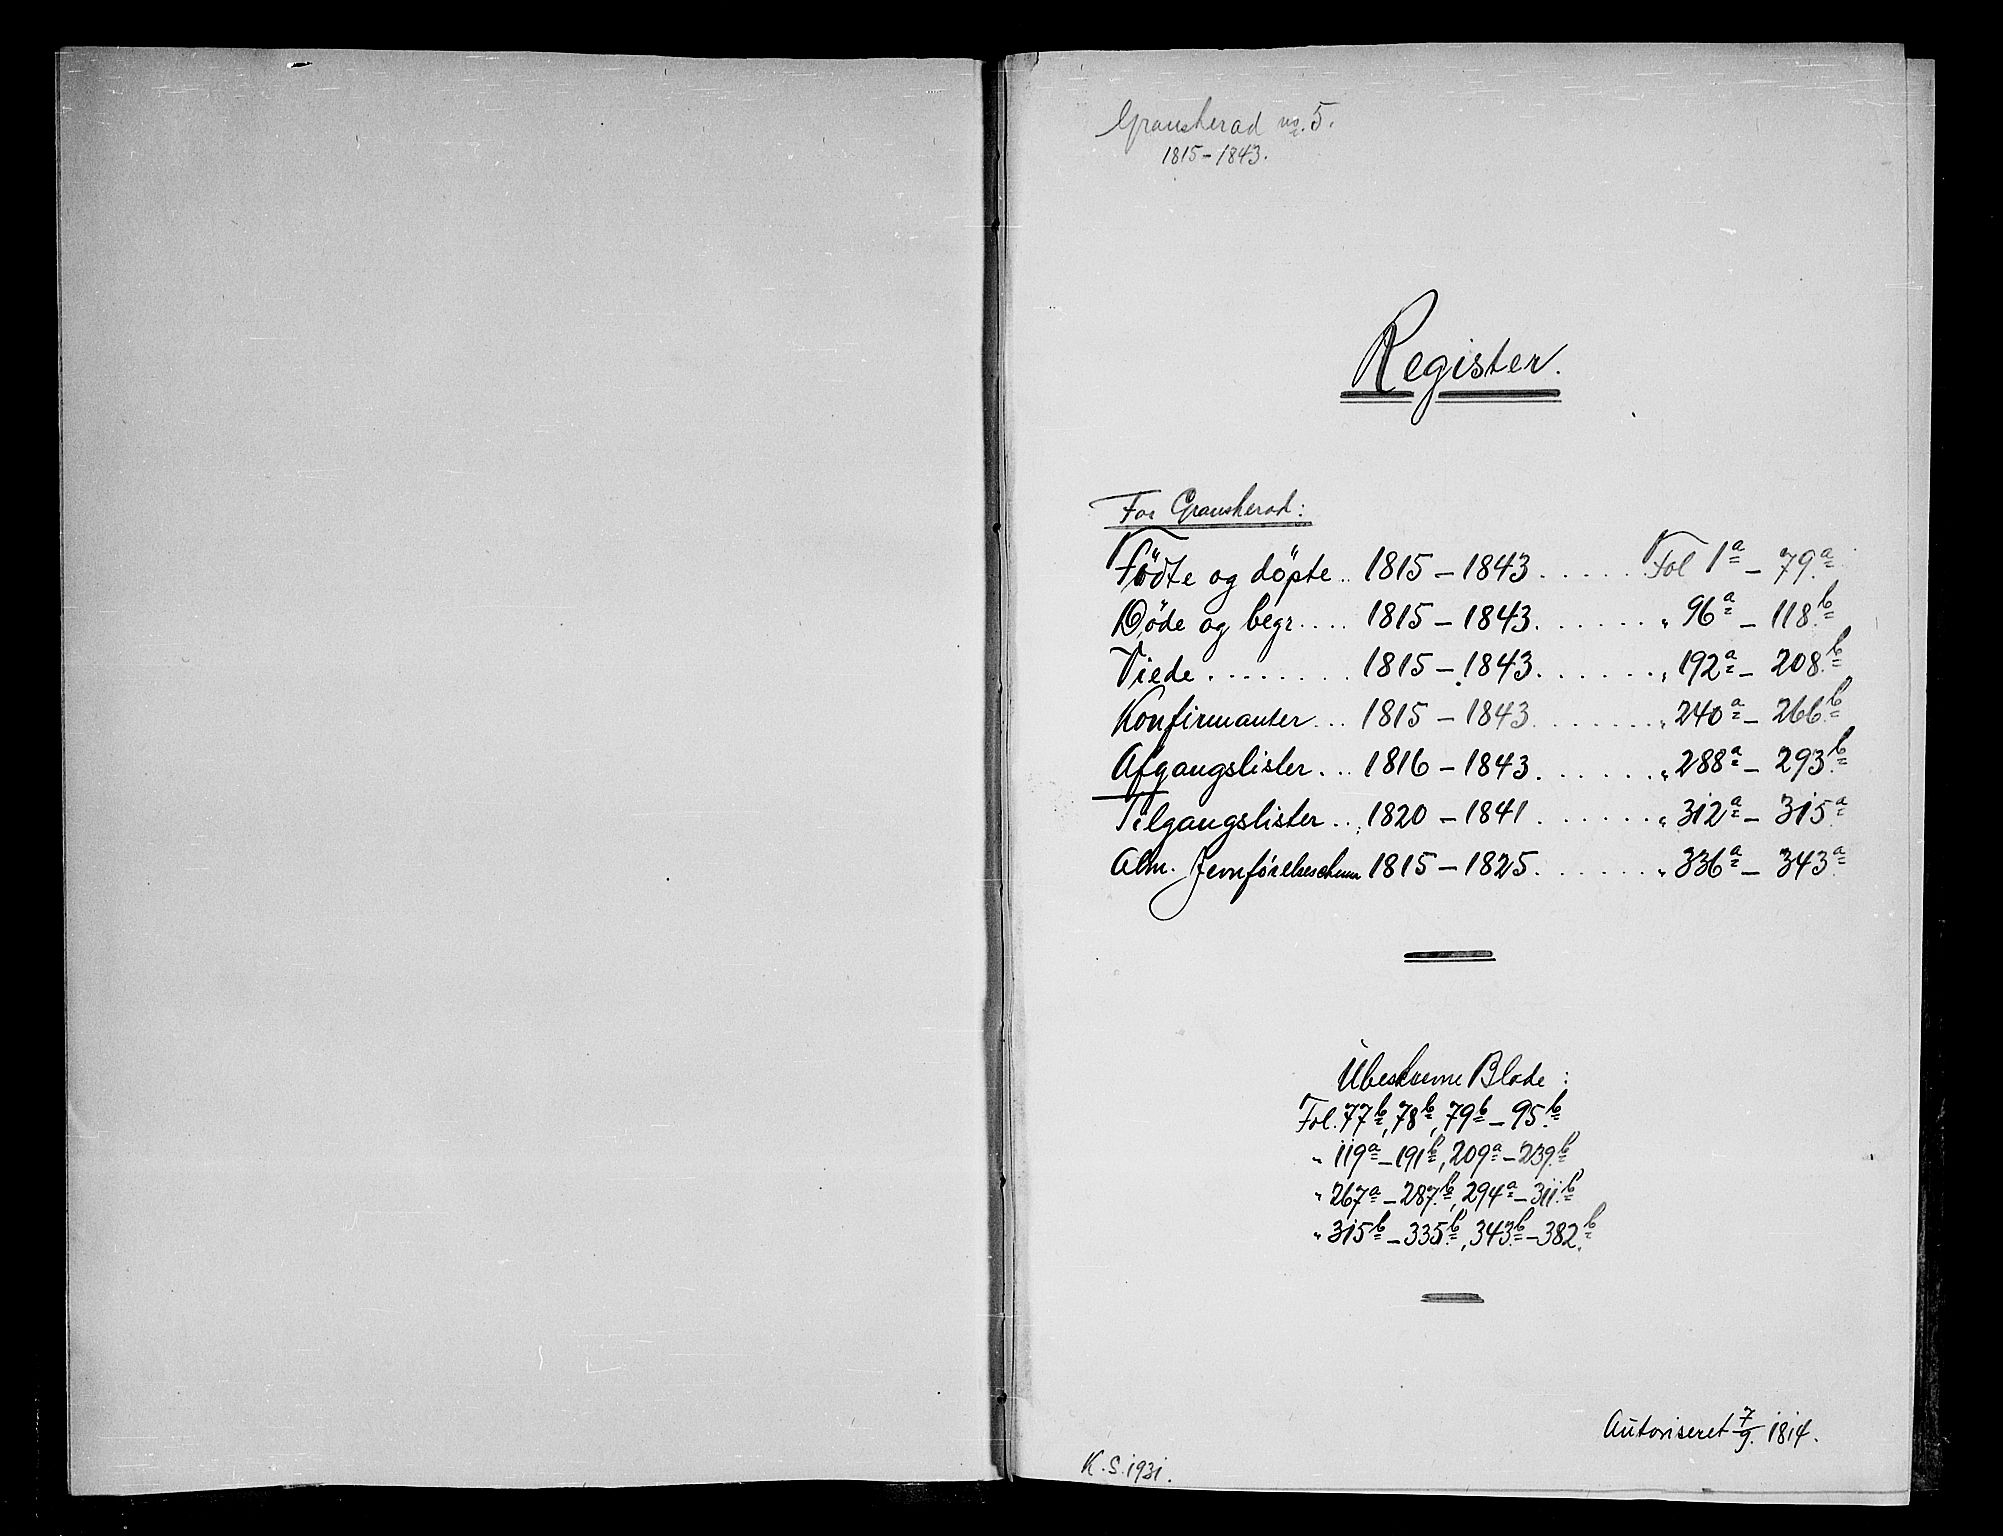 Gransherad no. 5.
1815–1843.
Register.
For Gransherad:
Födte og döpte .. 1815 – 1843 ..... Fol 1a – 79a
Döde og begr .... 1815 – 1843 ...... „ 96a – 118b
Viede ........ 1815 – 1843 ...... „ 192a – 208b
Konfirmanter ... 1815 – 1843 ...... „ 240a – 266b
Afgangslister ... 1816 – 1843 ...... „ 288a – 293b
Tilgangslister ... 1820 – 1841 ...... „ 312a – 315a
Alm. 1815 – 1825 ...... „ 336a – 343a
Ubeskrevne Blade:
Fol. 77b, 78b, 79b – 95b
„ 119a – 191b, 209a – 239b
„ 267a – 287b, 294a – 311b
„ 315b – 335b, 343b – 382b
Autoriseret 7/9. 1814.
K. S. 1931.